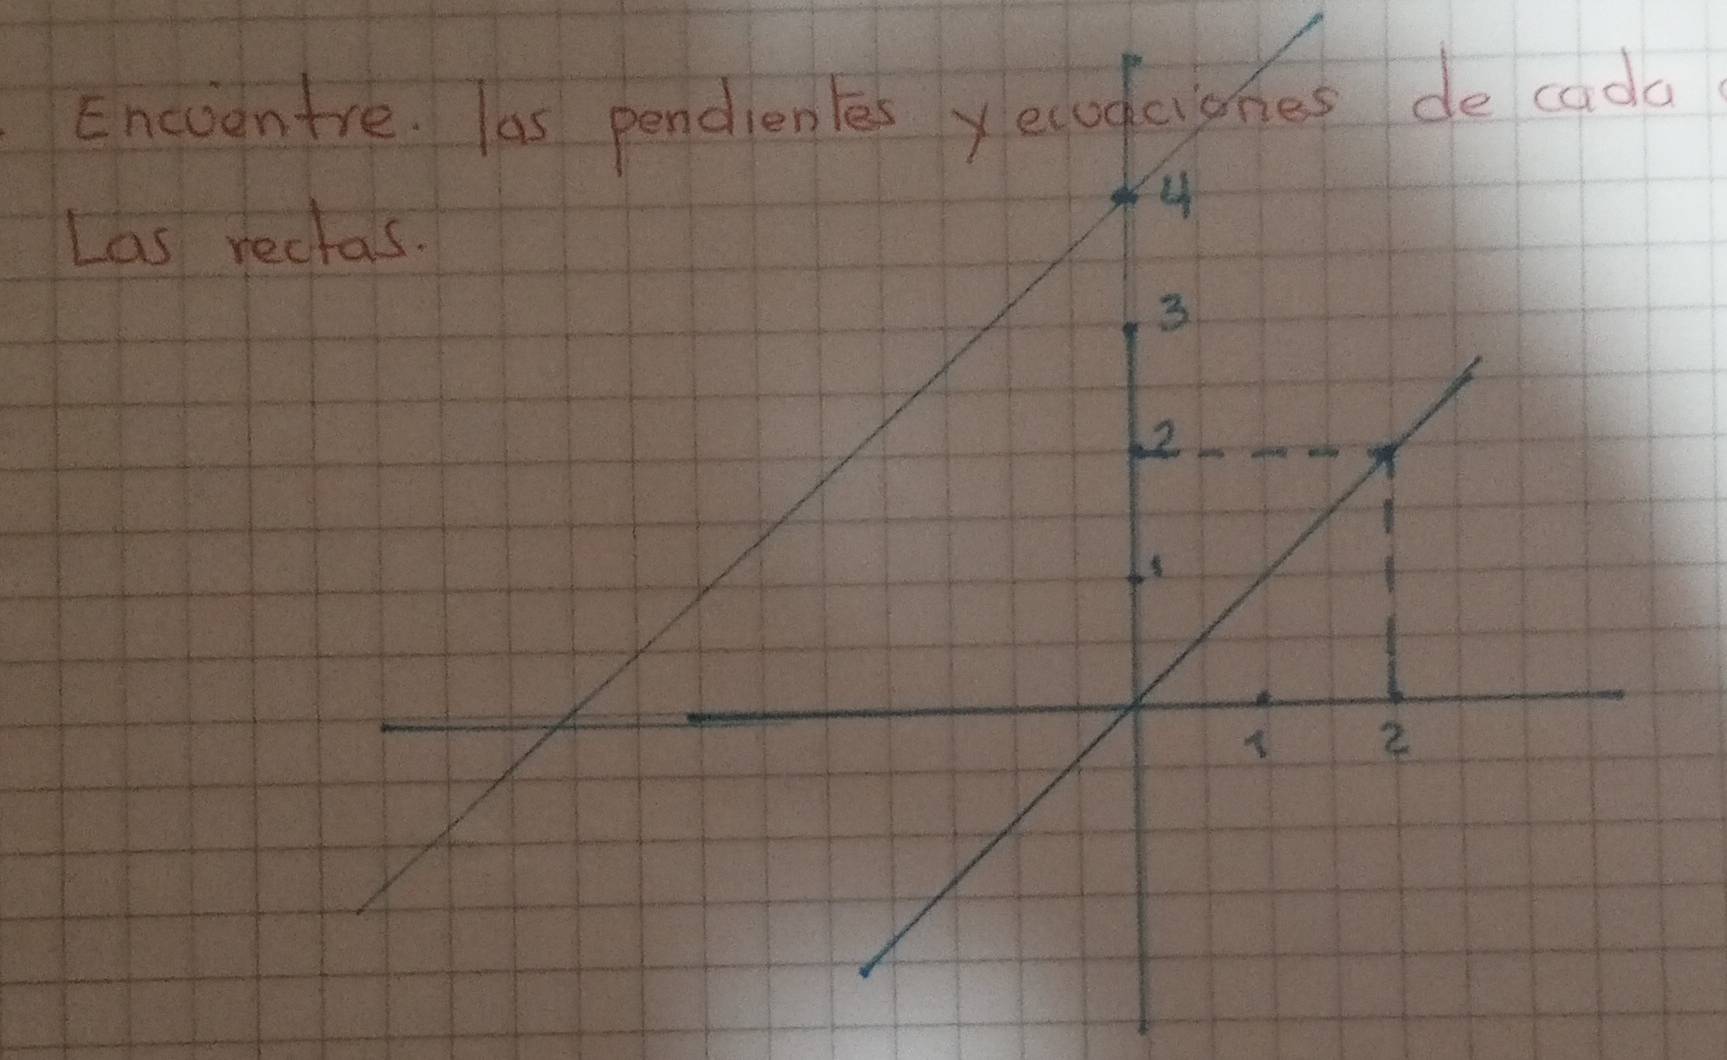 Encuentre. las pendientes y ecuaciones de cada
Las rectas.
4
3
2
1
1 2